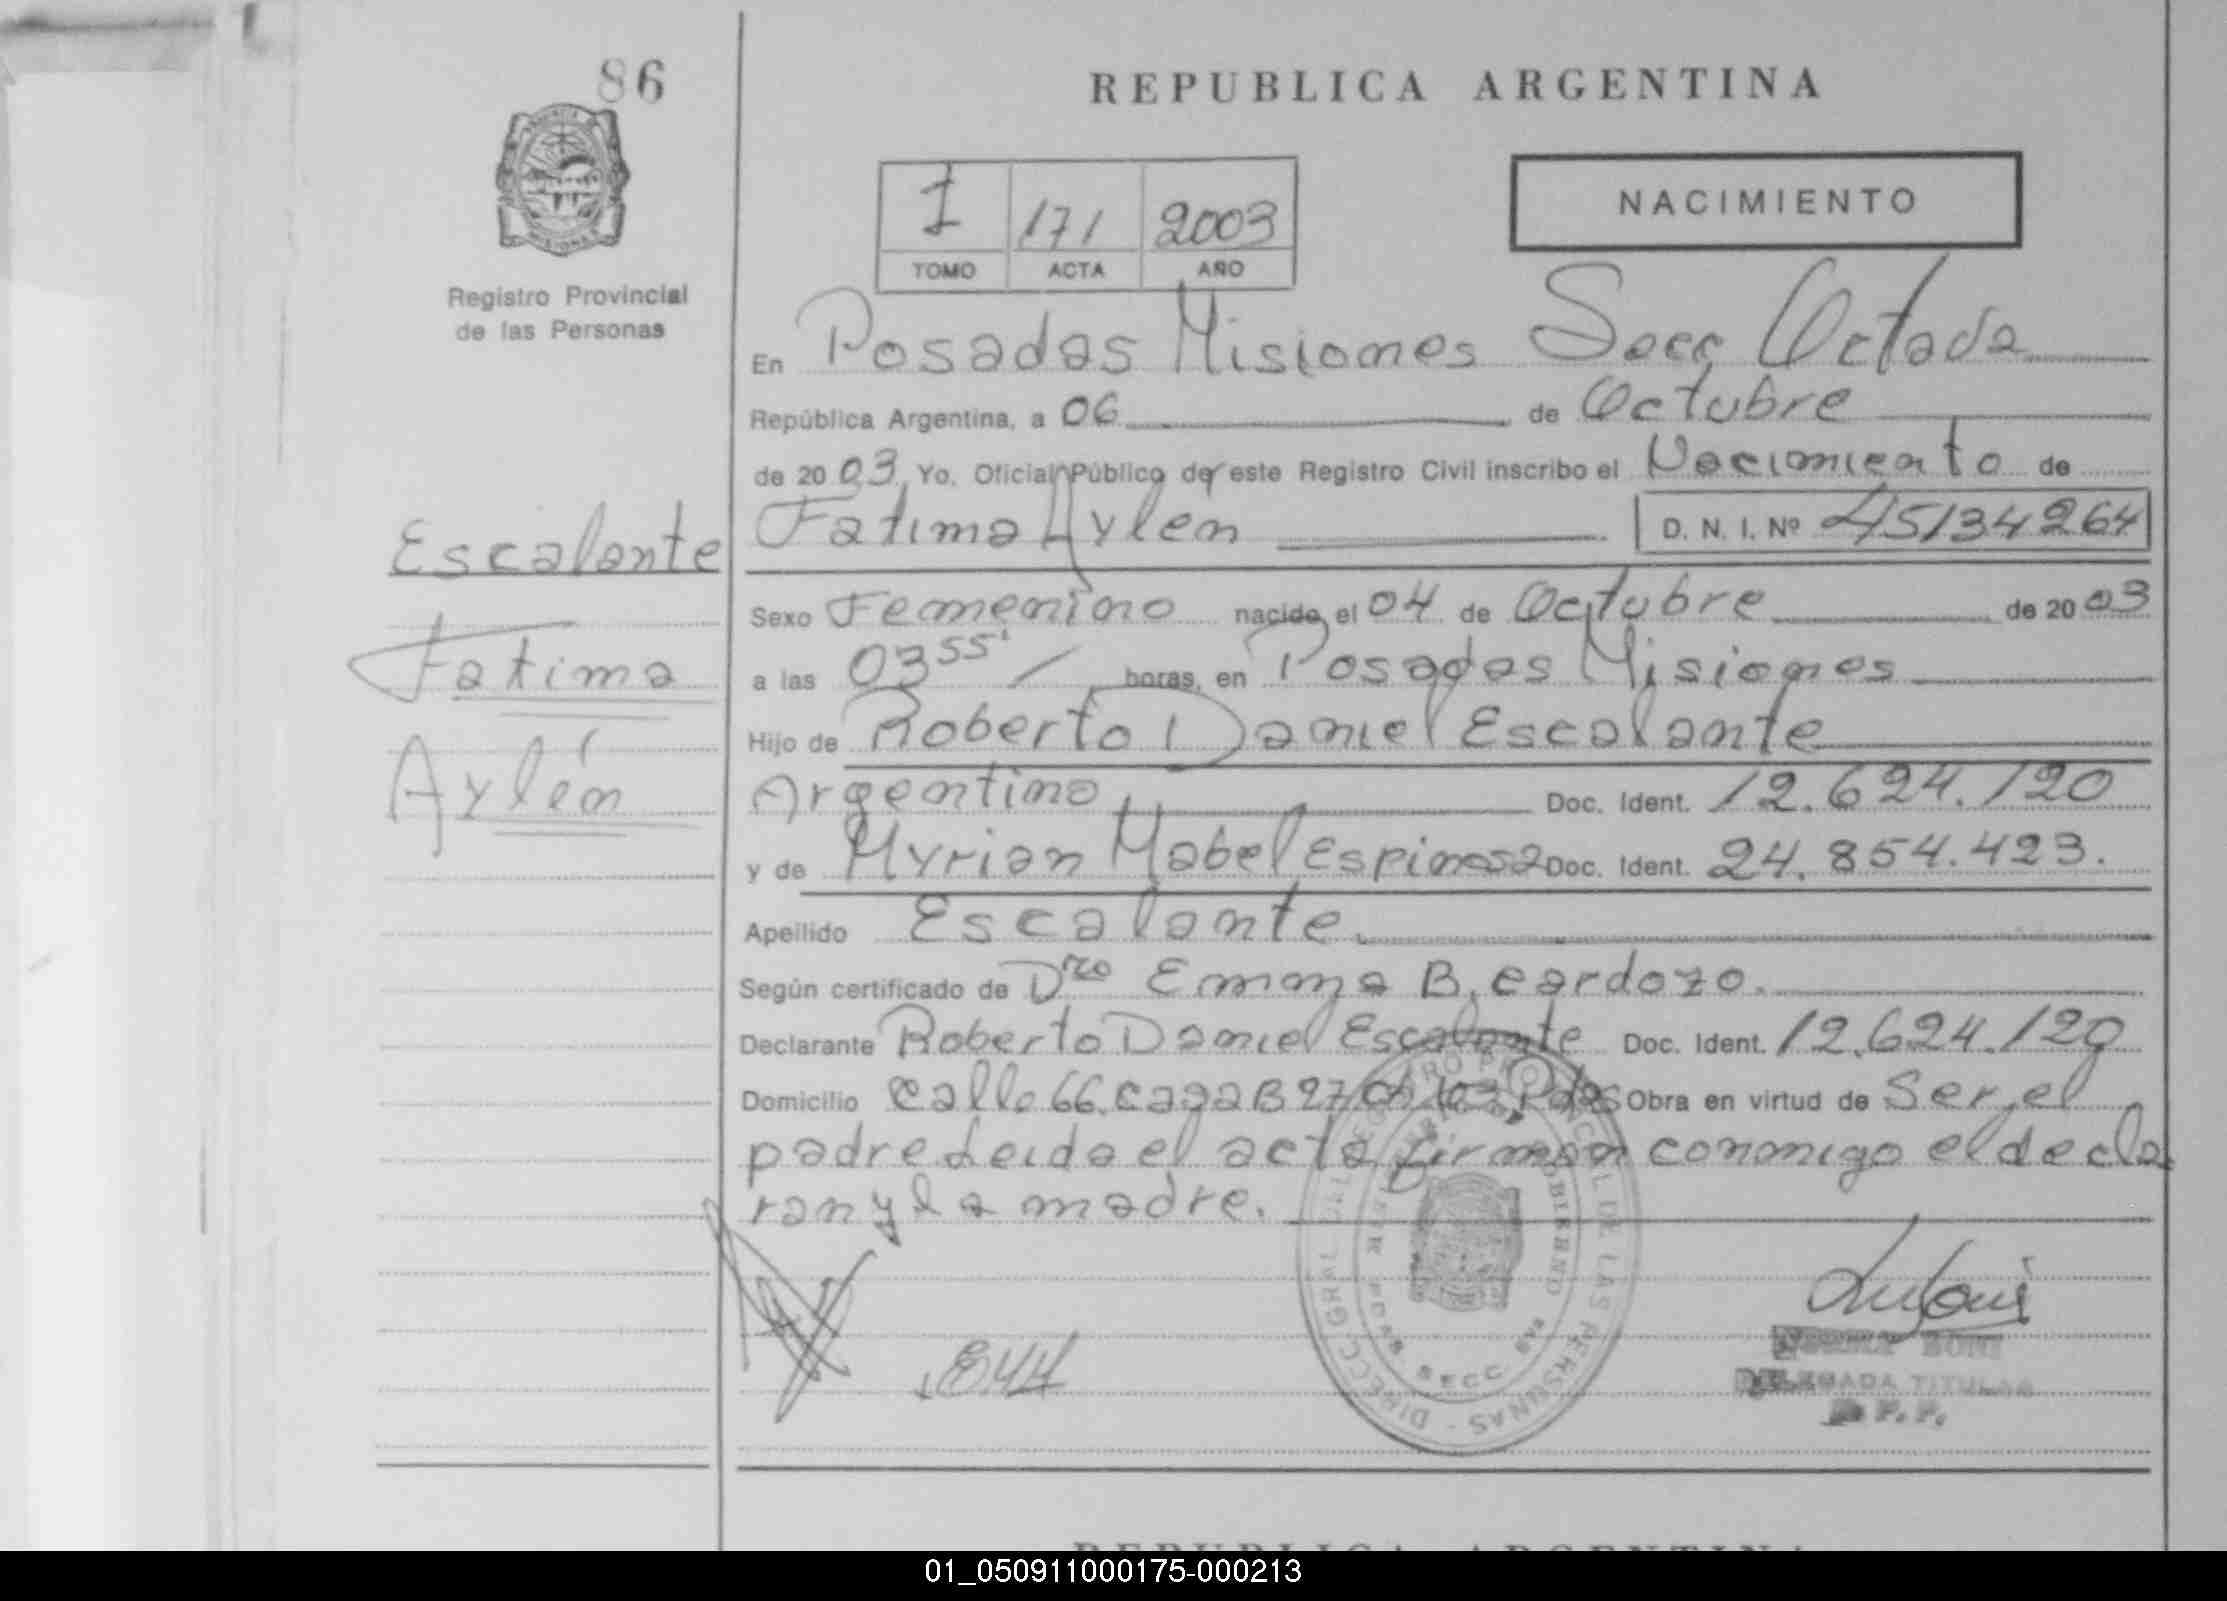 86
REPUBLICA ARGENTINA
I 171 2003
TOMO ACTA AÑO
NACIMIENTO
Registro Provincial
de las Personas
En Posadas Misiones Secc Octava
República Argentina, a 06 de Octubre
de 2003 Yo, Oficial Público de este Registro Civil inscribo el Nacimiento de
Escalante
Fatima Aylen D. N. I. Nº 45134264
Sexo Femenino nacido el 04 de Octubre de 2003
Fatima
a las 03 55' horas, en Posadas Misiones
Hijo de Roberto Daniel Escalante
Aylén
Argentino Doc. Ident. 12.624.120
y de Myrian Mabel Espinosa Doc. Ident. 24.854.423.
Apellido Escalante.
Según certificado de Dra Emma B. Cardozo.
Declarante Roberto Daniel Escalante Doc. Ident. 12.624.120
Domicilio Calle 66 Casa B 27 Pdas Obra en virtud de Ser el
padre Leida el acta firman conmigo el decla
ran y la madre.
DIRECC GRAL DEL REGISTRO PROVINCIAL DE LAS PERSONAS
GOBIERNO
SECC 8va
BONI
DELEGADA TITULAR
R. P. P.
REPUBLICA ARGENTINA
01_050911000175-000213